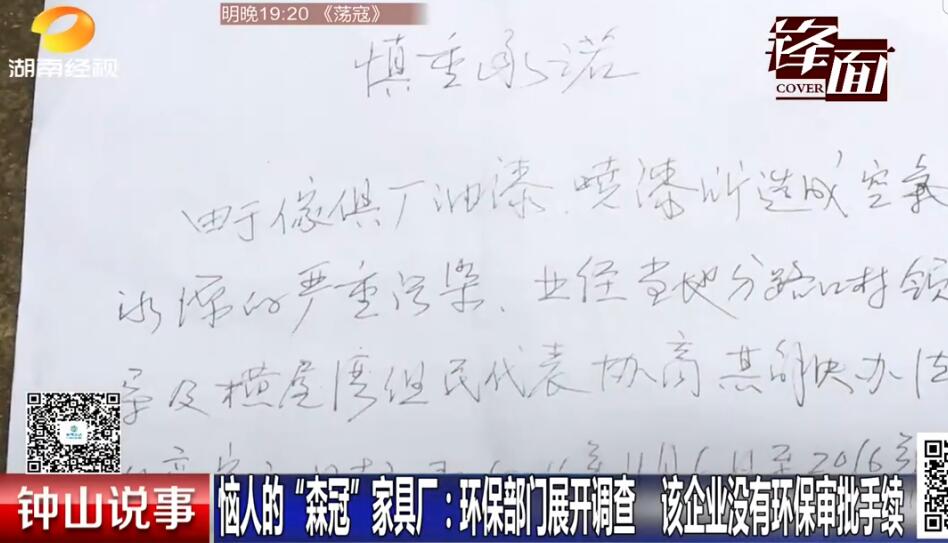 明晚19:20 《荡寇》
湖南经视
锋面
COVER
慎重承诺
由于傢俱厂油漆、喷漆所造成空氣
水源的严重污染、业经当地分路口村领
导及横屋湾组民代表协商其解决办法
年11月6日至2016年
钟山说事
恼人的“森冠”家具厂：环保部门展开调查 该企业没有环保审批手续